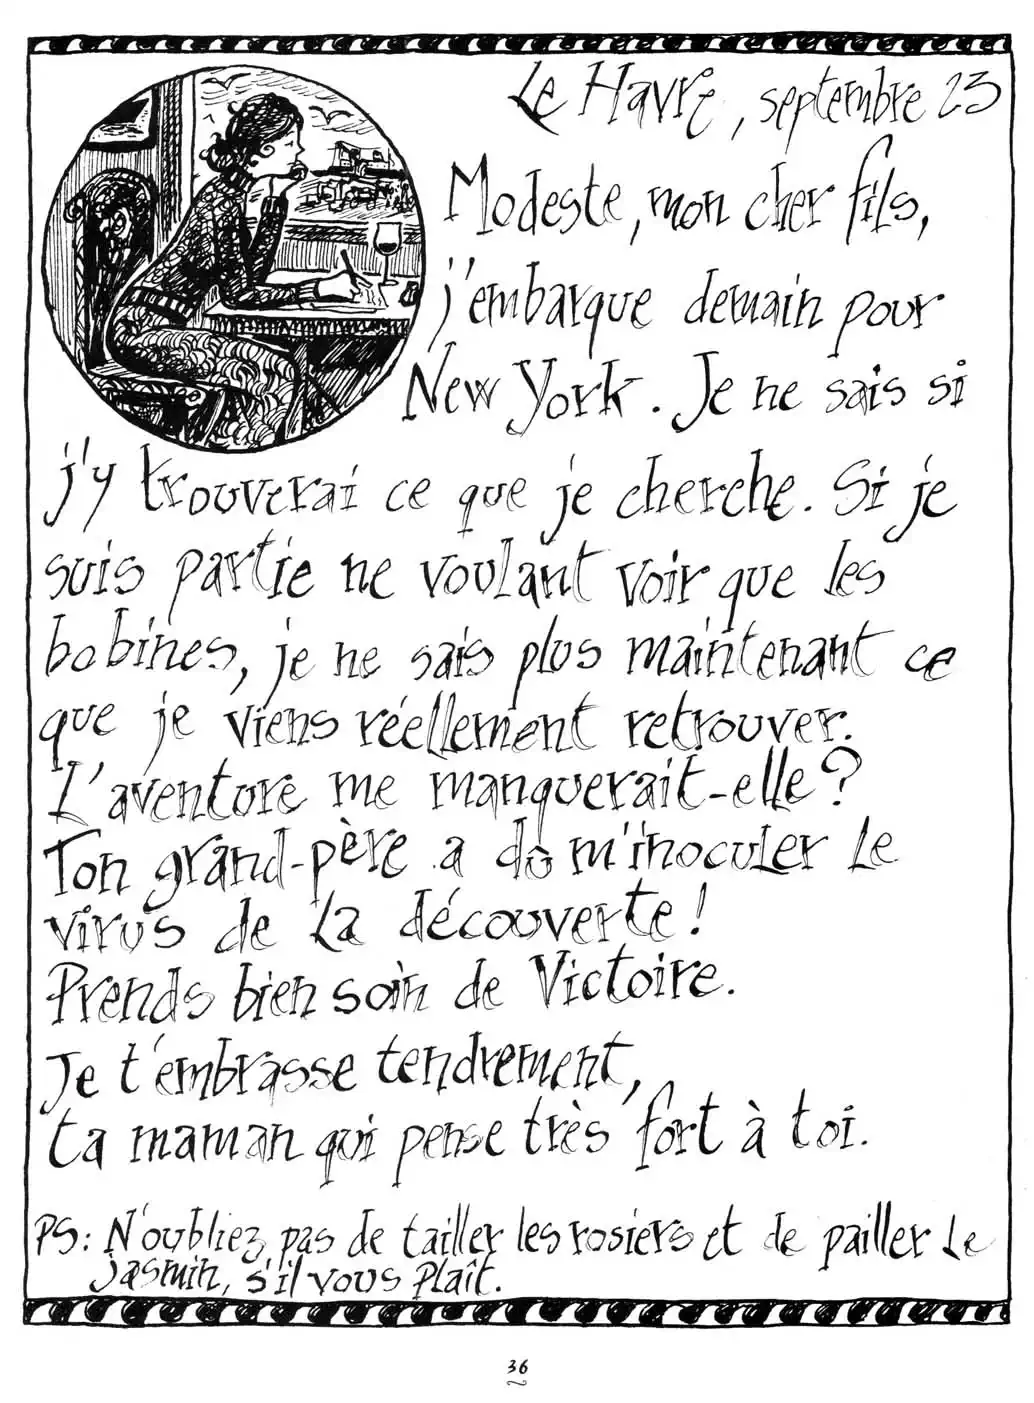 Le Havre, septembre 23
Modeste, mon cher fils,
j'embarque demain pour
New York. Je ne sais si
j'y trouverai ce que je cherche. Si je
suis partie ne voulant voir que les
bobines, je ne sais plus maintenant ce
que je viens réellement retrouver.
L'aventure me manquerait-elle?
Ton grand-père a dû m'inoculer le
virus de la découverte!
Prends bien soin de Victoire.
Je t'embrasse tendrement,
ta maman qui pense très fort à toi.
PS: N'oubliez pas de tailler les rosiers et de pailler le
jasmin, s'il vous plaît.
36